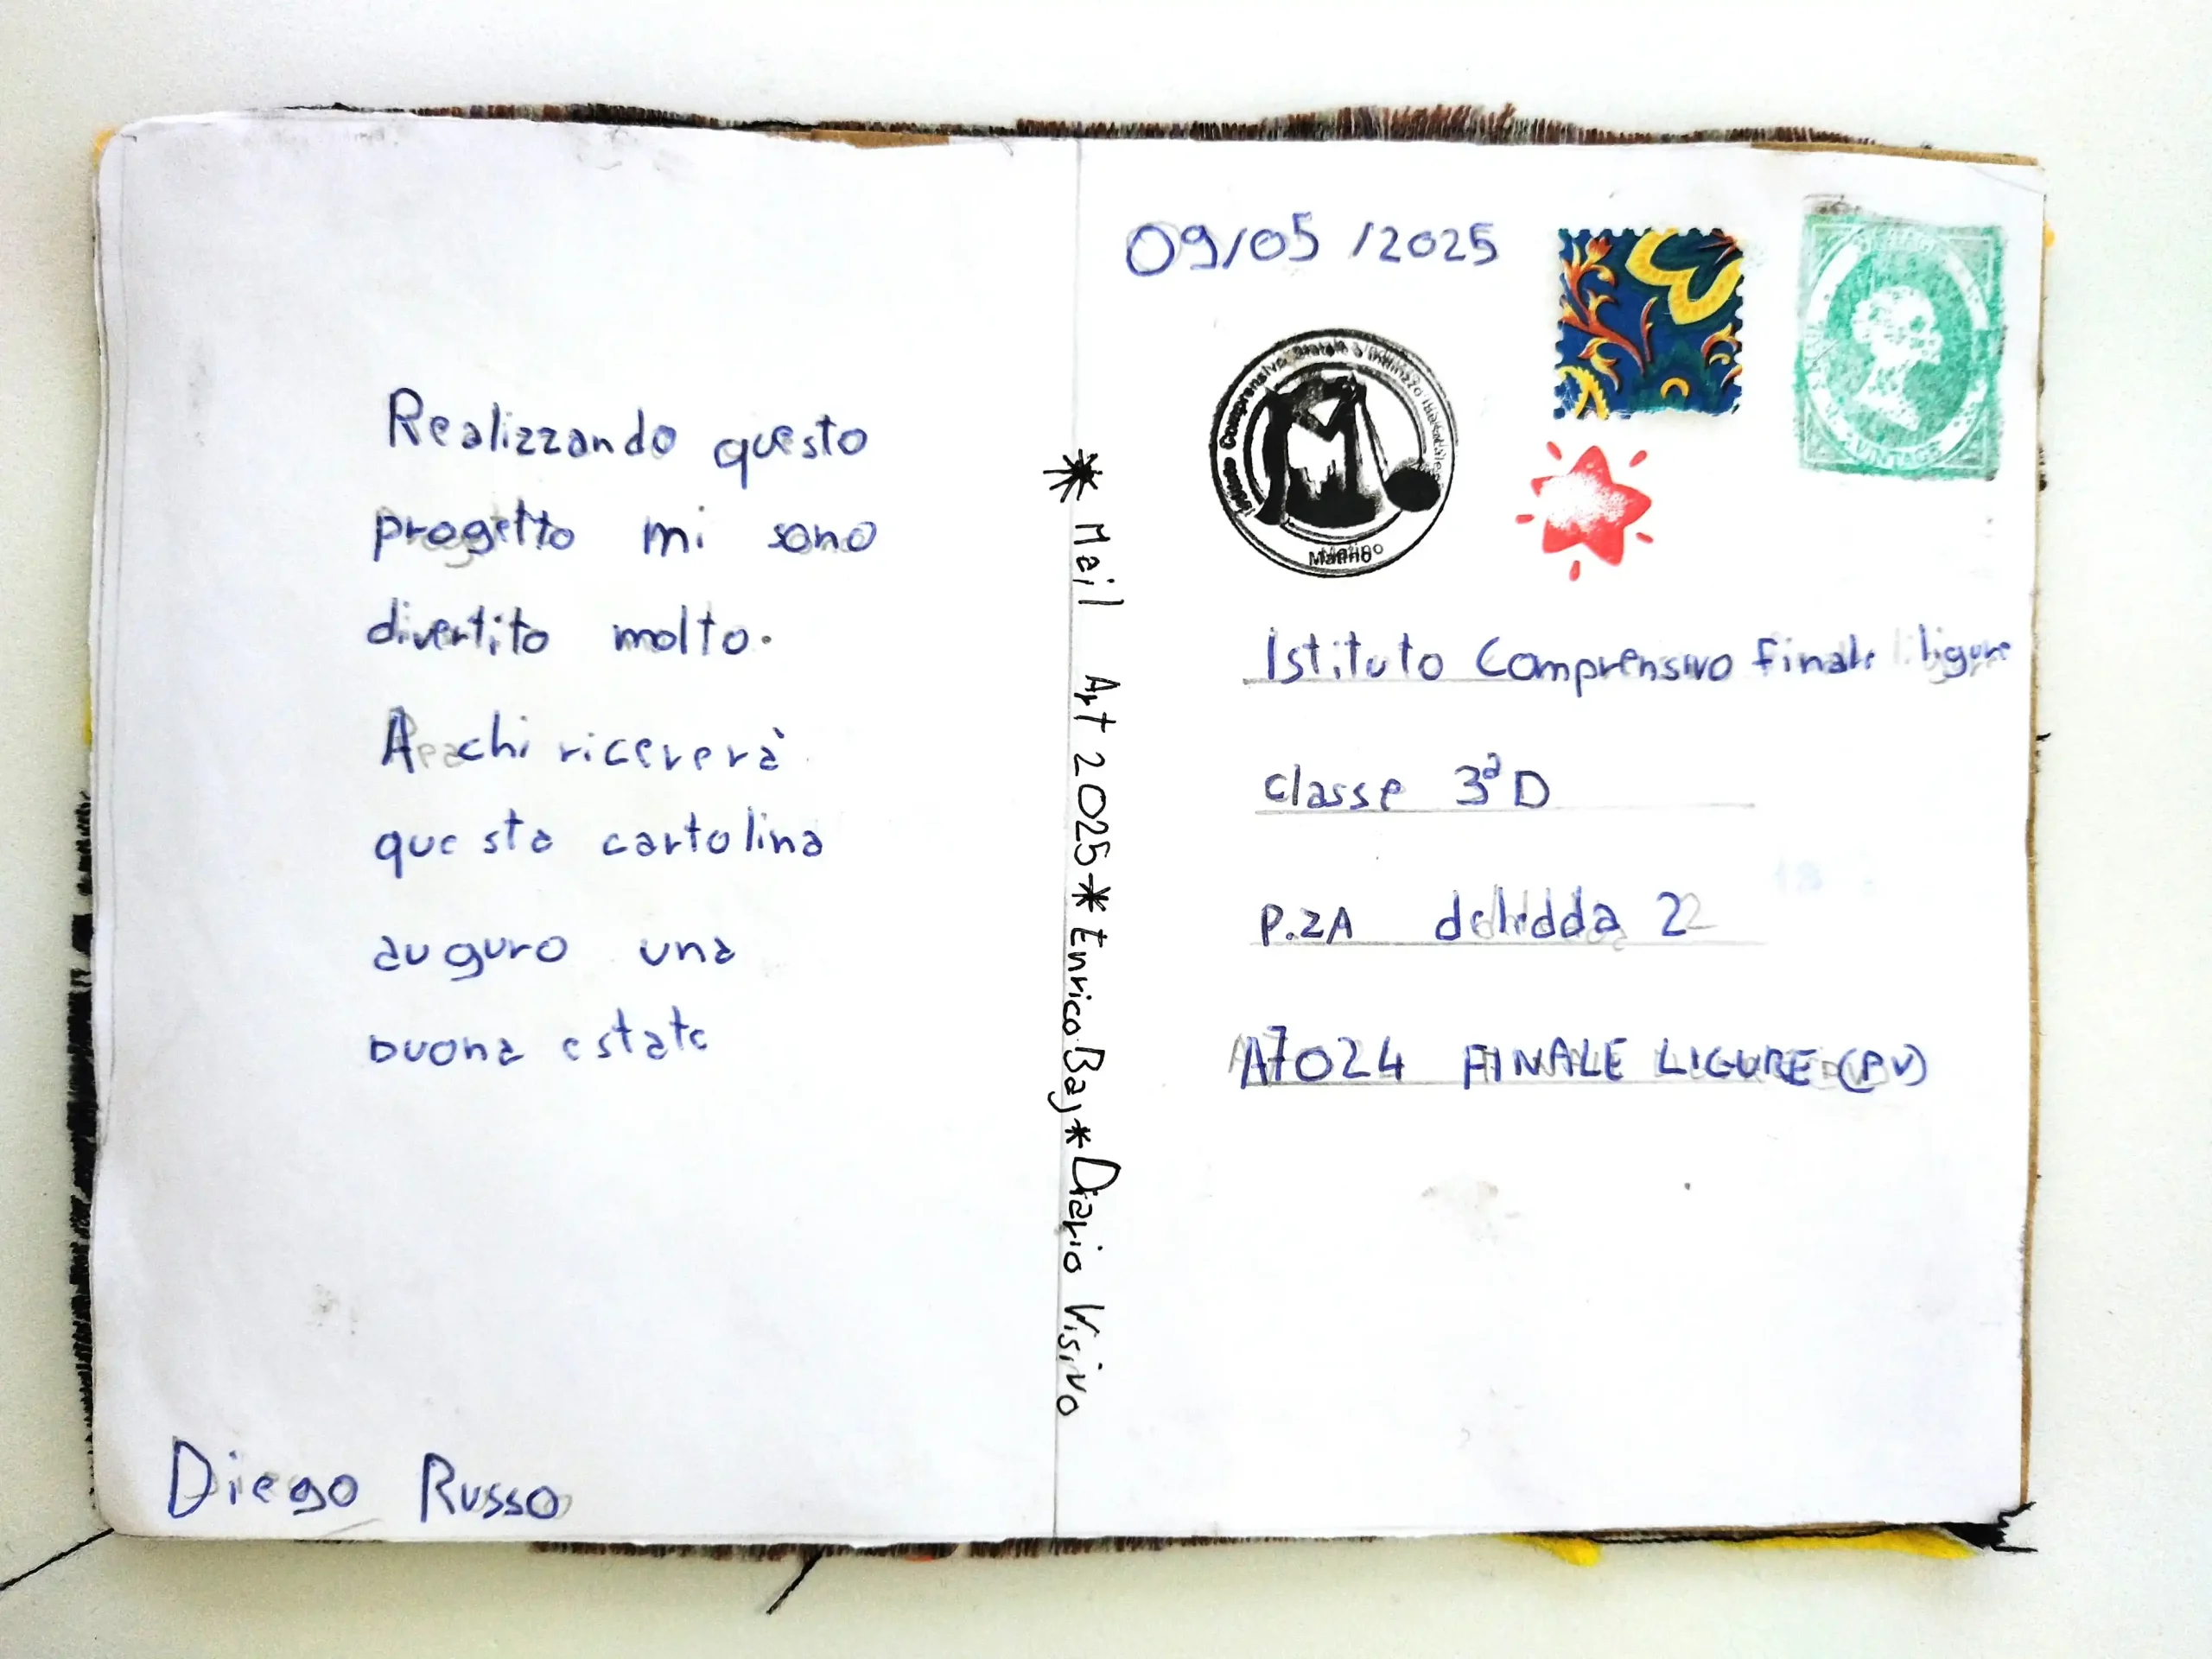 Realizzando questo
progetto mi sono
divertito molto.
A chi riceverà
questa cartolina
auguro una
buona estate
Diego Russo
* Mail Art 2025 * Enrico Baj * Diario Visivo
09/05/2025
Comprensivo Statale a Indirizzo
VINTAGE
Istituto Comprensivo Finale ligure
classe 3ªD
P.ZA deledda 2
17024 FINALE LIGURE